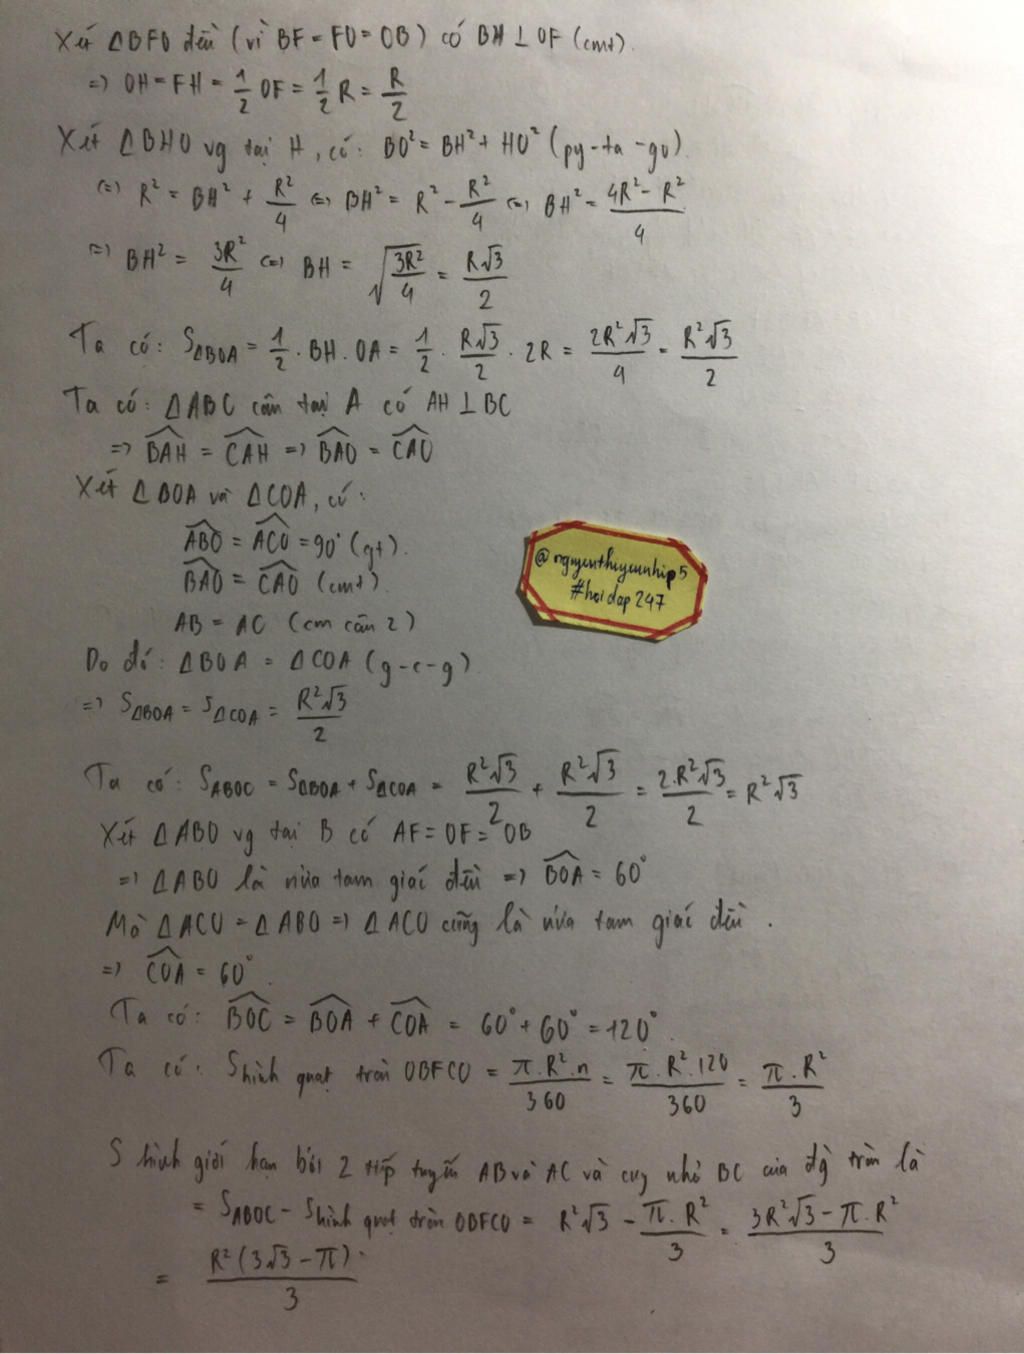 Xét ΔBFO đều (vì BF = FO = OB) có BH ⊥ OF (cmt).
=> OH = FH = 1/2 OF = 1/2 R = R/2
Xét ΔBHO vg tại H, có: BO² = BH² + HO² (py-ta-go)
<=> R² = BH² + R²/4 <=> BH² = R² - R²/4 <=> BH² = (4R² - R²)/4
=> BH² = 3R²/4 <=> BH = √(3R²/4) = R√3/2
Ta có: SΔBOA = 1/2 . BH . OA = 1/2 . R√3/2 . 2R = 2R²√3/4 = R²√3/2
Ta có: ΔABC cân tại A có AH ⊥ BC
=> BAH = CAH => BAO = CAO
Xét ΔBOA và ΔCOA, có:
ABO = ACO = 90° (gt).
BAO = CAO (cmt)
AB = AC (cm câu 2)
Do đó: ΔBOA = ΔCOA (g-c-g)
=> SΔBOA = SΔCOA = R²√3/2
@nguyenthiyeunhip5
#hoidap247
Ta có: SABOC = SΔBOA + SΔCOA = R²√3/2 + R²√3/2 = 2.R²√3/2 = R²√3
Xét ΔABO vg tại B có AF = OF = OB
=> ΔABO là nửa tam giác đều => BOA = 60°
Mà ΔACO = ΔABO => ΔACO cũng là nửa tam giác đều.
=> COA = 60°.
Ta có: BOC = BOA + COA = 60° + 60° = 120°.
Ta có: S hình quạt tròn OBFCO = π.R².n/360 = π.R².120/360 = π.R²/3
S hình giới hạn bởi 2 tiếp tuyến AB và AC và cung nhỏ BC của đg tròn là
= SABOC - S hình quạt tròn OBFCO = R²√3 - π.R²/3 = (3R²√3 - π.R²)/3
= R²(3√3 - π)/3